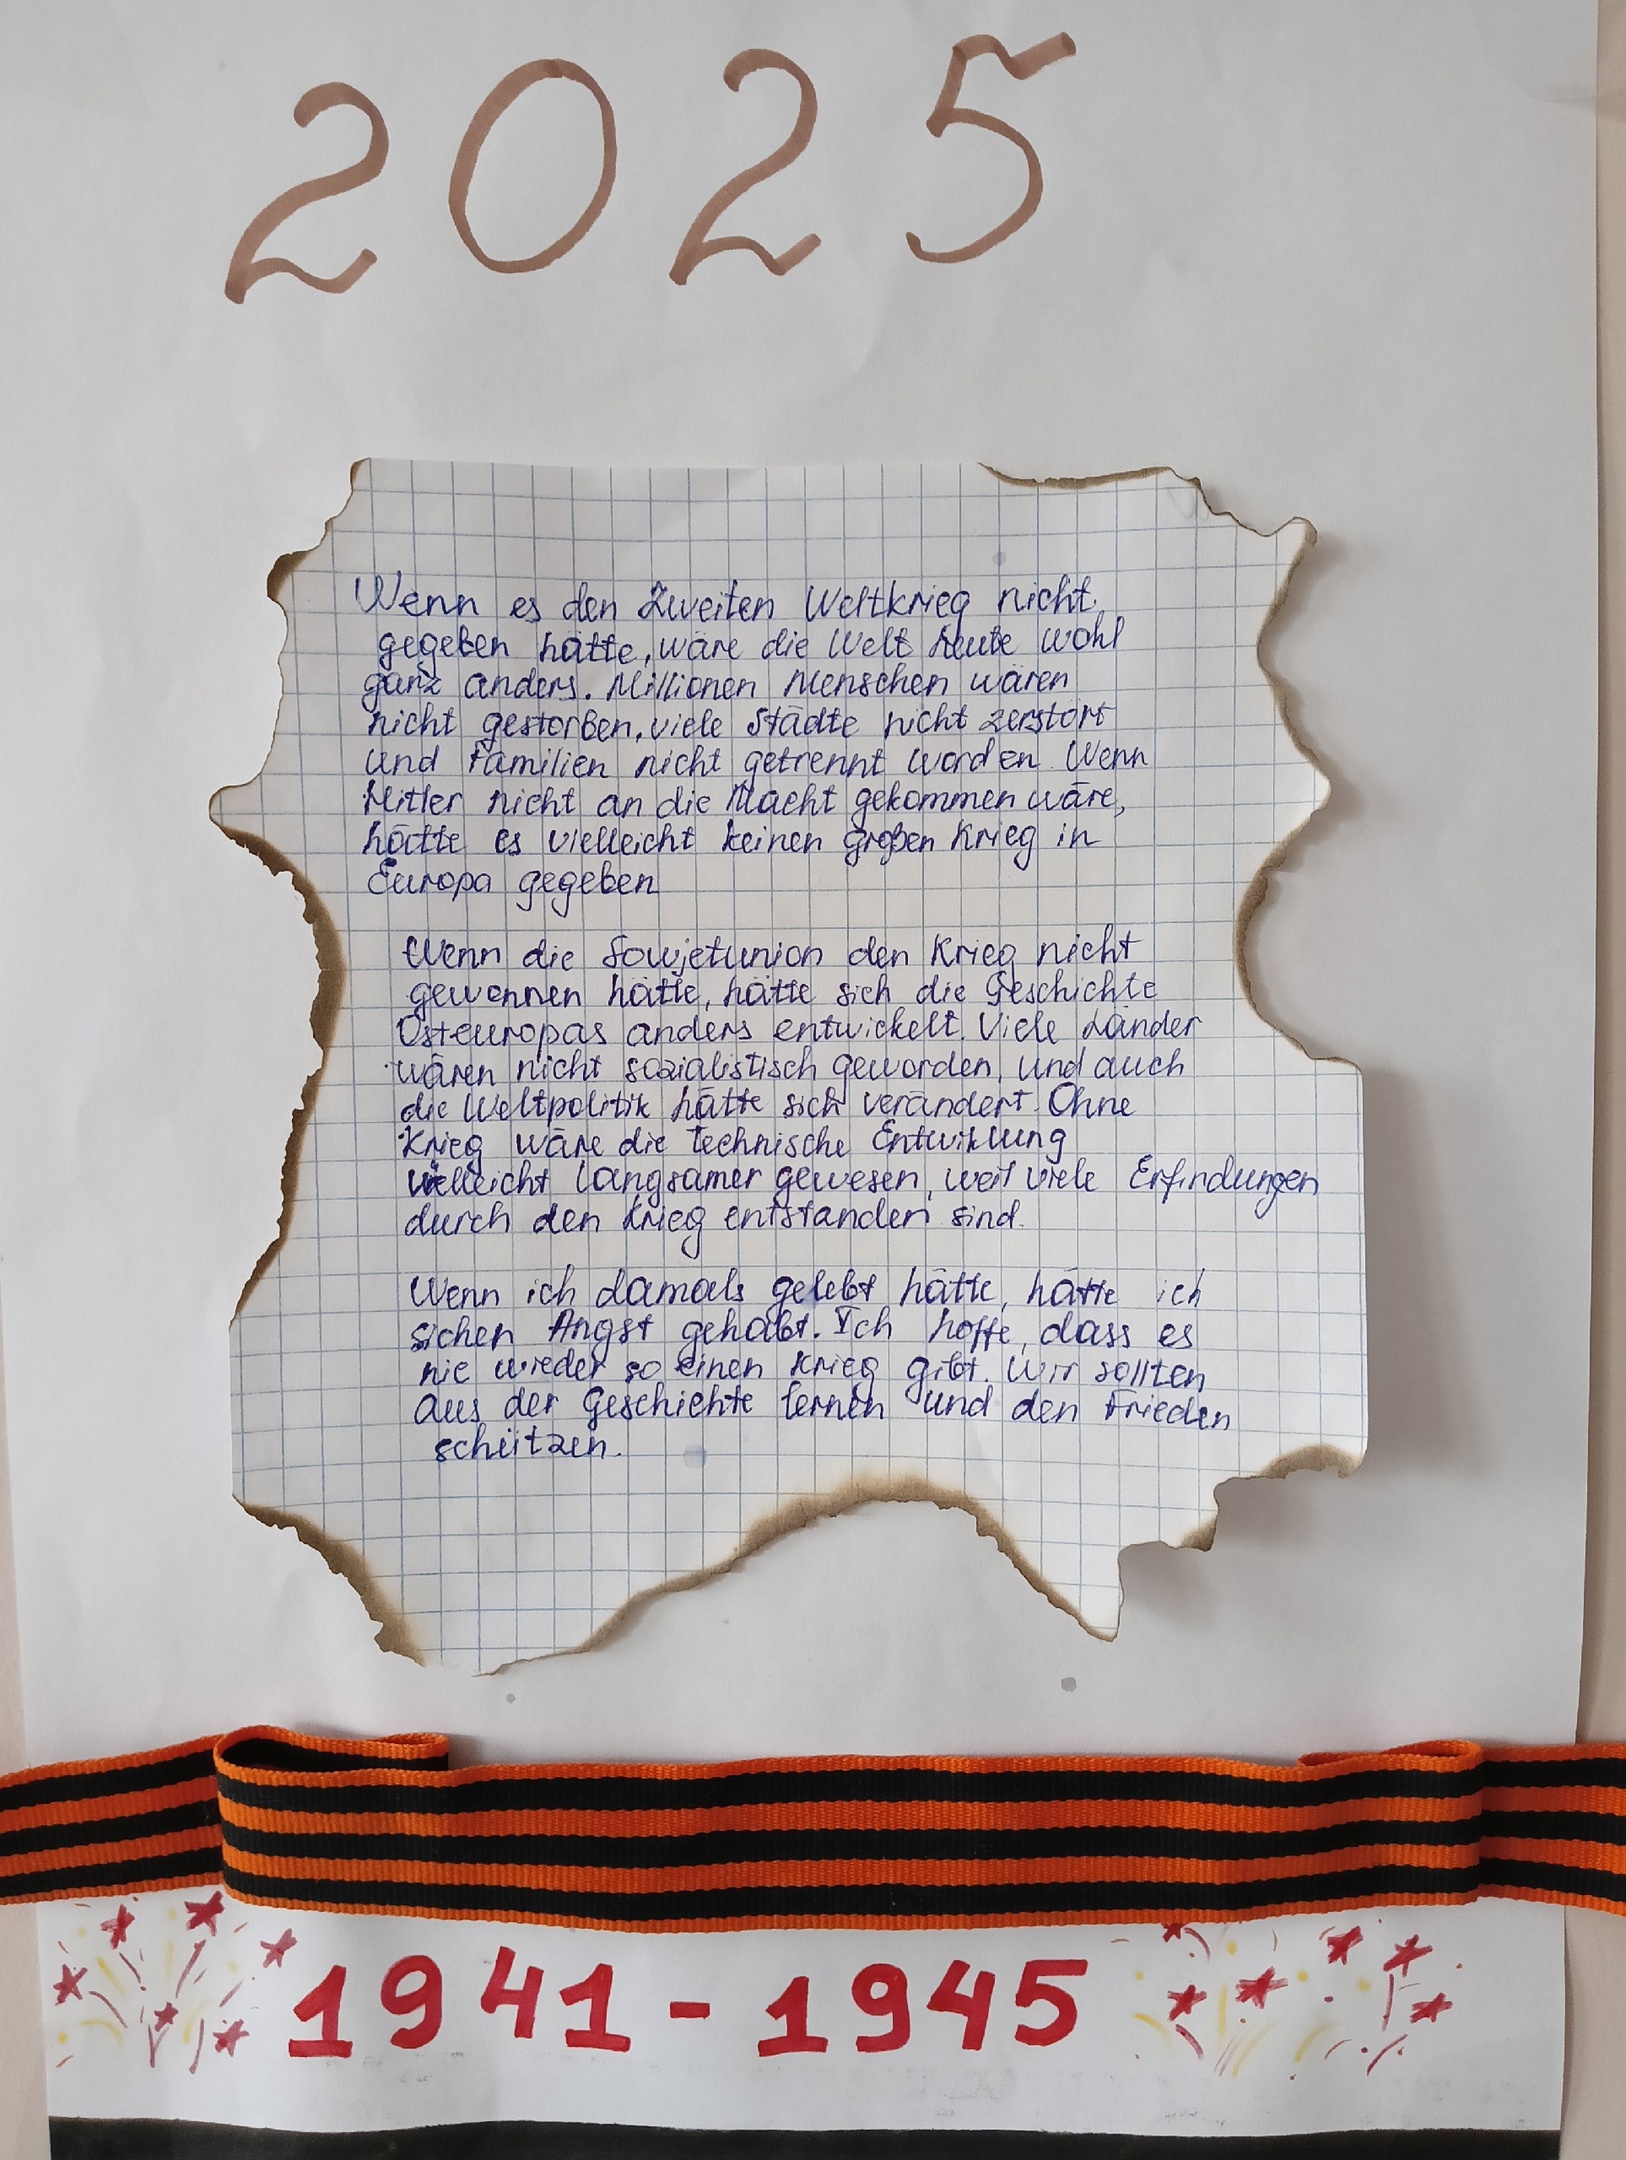 2025
Wenn es den Zweiten Weltkrieg nicht
gegeben hätte, wäre die Welt heute wohl
ganz anders. Millionen Menschen wären
nicht gestorben, viele Städte nicht zerstört
und Familien nicht getrennt worden. Wenn
Hitler nicht an die Macht gekommen wäre,
hätte es vielleicht keinen großen Krieg in
Europa gegeben
Wenn die Sowjetunion den Krieg nicht
gewonnen hätte, hätte sich die Geschichte
Osteuropas anders entwickelt. Viele Länder
wären nicht sozialistisch geworden, und auch
die Weltpolitik hätte sich verändert. Ohne
Krieg wäre die technische Entwiklung
vielleicht langsamer gewesen, weil viele Erfindungen
durch den Krieg entstanden sind.
Wenn ich damals gelebt hätte, hätte ich
sicher Angst gehabt. Ich hoffe, dass es
nie wieder so einen Krieg gibt. Wir sollten
aus der Geschichte lernen und den Frieden
schützen.
1941-1945